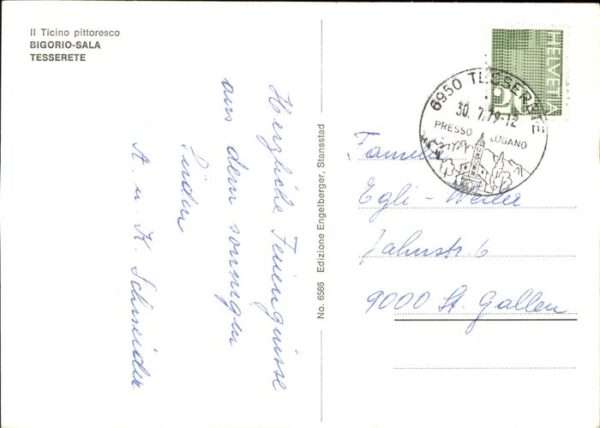 Il Ticino pittoresco
BIGORIO-SALA
TESSERETE
Herzliche Feriengrüsse
aus dem sonnigen
Süden
A. u. K. Schneider
No. 6566 Edizione Engelberger, Stansstad
HELVETIA
6950 TESSERETE
30.7.79-12
PRESSO LUGANO
Familie
Egli-
Jahnstr. 6
9000 St. Gallen